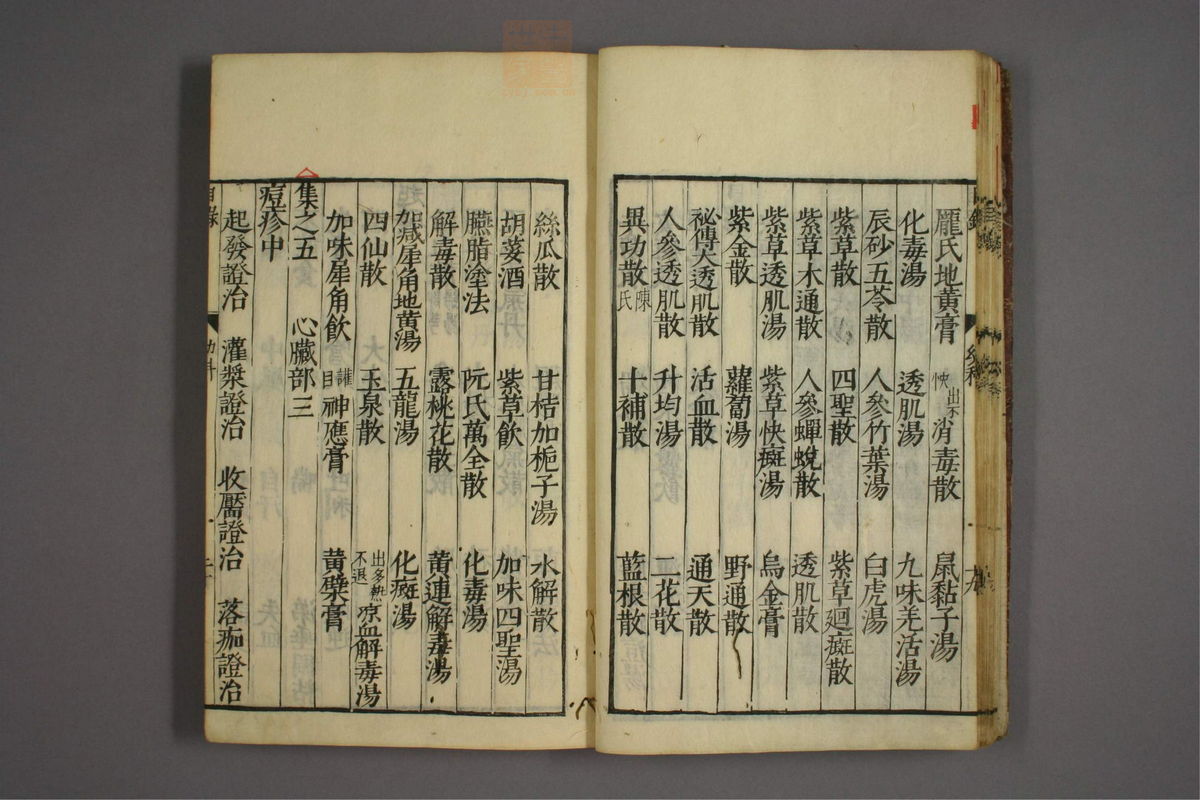 龎氏地黄膏 出不快 消毒散 鼠黏子湯
化毒湯 透肌湯 九味羌活湯
辰砂五苓散 人參竹葉湯 白虎湯
紫草散 四聖散 紫草廻癍散
紫草木通散 人參蟬蛻散 透肌散
紫草透肌湯 紫草快癍湯 烏金膏
紫金散 蘿蔔湯 野通散
祕傳天透肌散 活血散 通天散
人參透肌散 升均湯 二花散
異功散 陳氏 十補散 藍根散
絲瓜散 甘桔加梔子湯 水解散
胡荽酒 紫草飲 加味四聖湯
臙脂塗法 阮氏萬全散 化毒湯
解毒散 露桃花散 黄連解毒湯
加减犀角地黄湯 五龍湯 化癍湯
四仙散 玉泉散 出多熱不退 凉血解毒湯
加味犀角飲 護目 神應膏 黄蘗膏
集之五 心臟部三
痘疹中
起發證治 灌漿證治 收靨證治 落痂證治
目錄 幼科